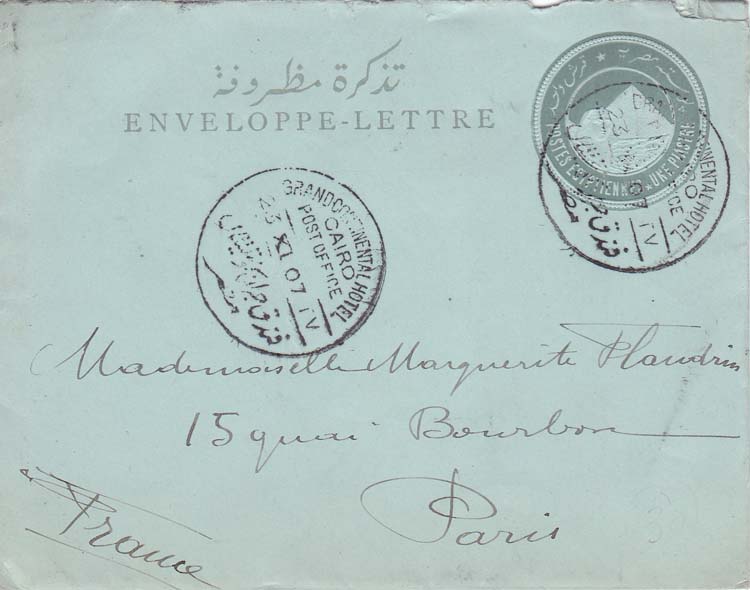 تذكرة مظروفة
ENVELOPPE-LETTRE
POSTES EGYPTIENNES
UNE PIASTRE
GRAND CONTINENTAL HOTEL
CAIRO
POST OFFICE
23 XI 07 IV
CONTINENTAL HOTEL
CAIRO
23 07 IV
Mademoiselle Marguerite Flandrin
15 quai Bourbon
Paris
France